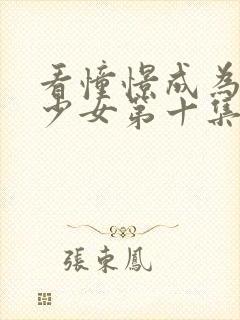 看憧憬成為
少女第十集
張東鳳